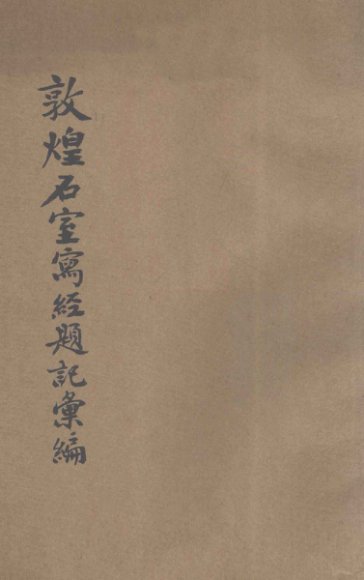 敦煌石室寫經題記彙編